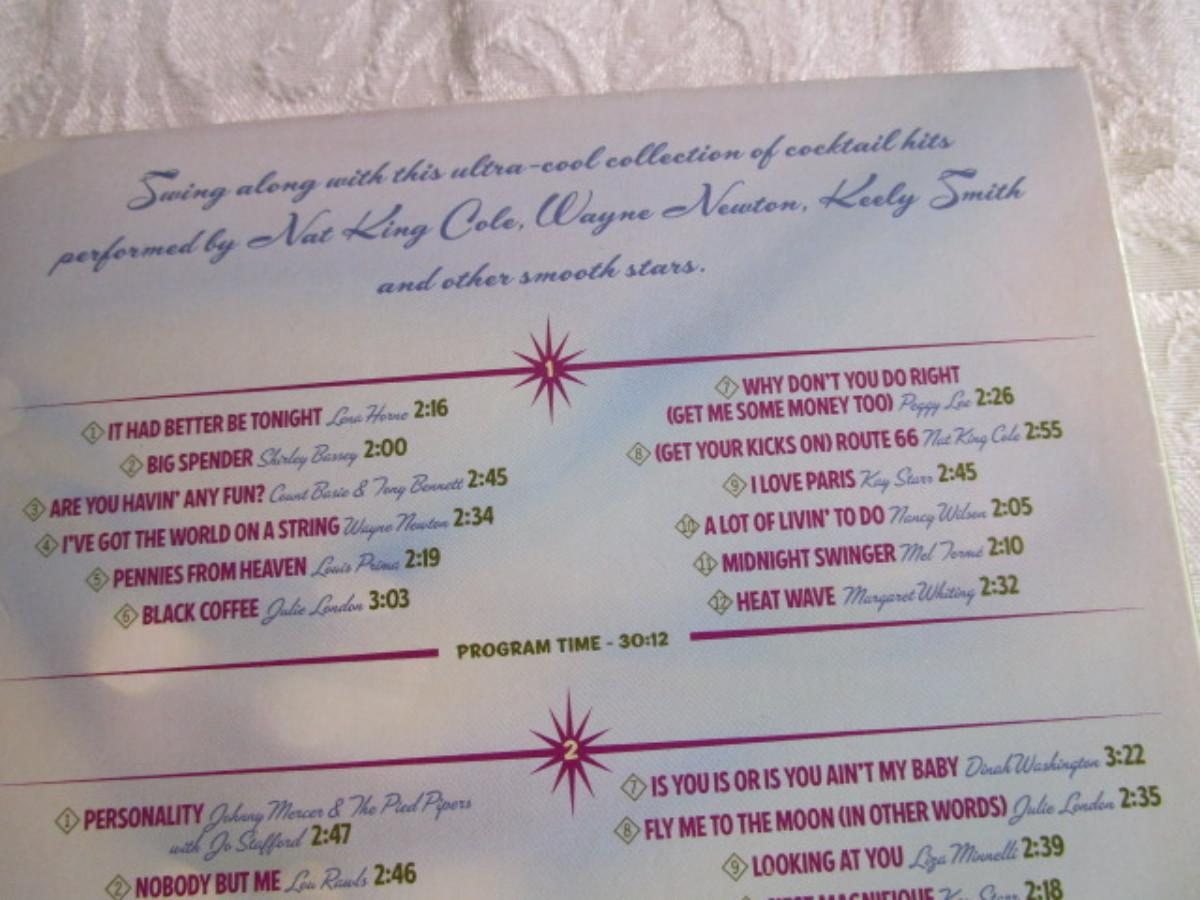 Swing along with this ultra-cool collection of cocktail hits
performed by Nat King Cole, Wayne Newton, Keely Smith
and other smooth stars.
1
1 IT HAD BETTER BE TONIGHT Lena Horne 2:16
2 BIG SPENDER Shirley Bassey 2:00
3 ARE YOU HAVIN' ANY FUN? Count Basie & Tony Bennett 2:45
4 I'VE GOT THE WORLD ON A STRING Wayne Newton 2:34
5 PENNIES FROM HEAVEN Louis Prima 2:19
6 BLACK COFFEE Julie London 3:03
7 WHY DON'T YOU DO RIGHT
(GET ME SOME MONEY TOO) Peggy Lee 2:26
8 (GET YOUR KICKS ON) ROUTE 66 Nat King Cole 2:55
9 I LOVE PARIS Kay Starr 2:45
10 A LOT OF LIVIN' TO DO Nancy Wilson 2:05
11 MIDNIGHT SWINGER Mel Tormé 2:10
12 HEAT WAVE Margaret Whiting 2:32
PROGRAM TIME - 30:12
2
1 PERSONALITY Johnny Mercer & The Pied Pipers
with Jo Stafford 2:47
2 NOBODY BUT ME Lou Rawls 2:46
7 IS YOU IS OR IS YOU AIN'T MY BABY Dinah Washington 3:22
8 FLY ME TO THE MOON (IN OTHER WORDS) Julie London 2:35
9 LOOKING AT YOU Liza Minnelli 2:39
MAGNIFIQUE Kay Starr 2:18